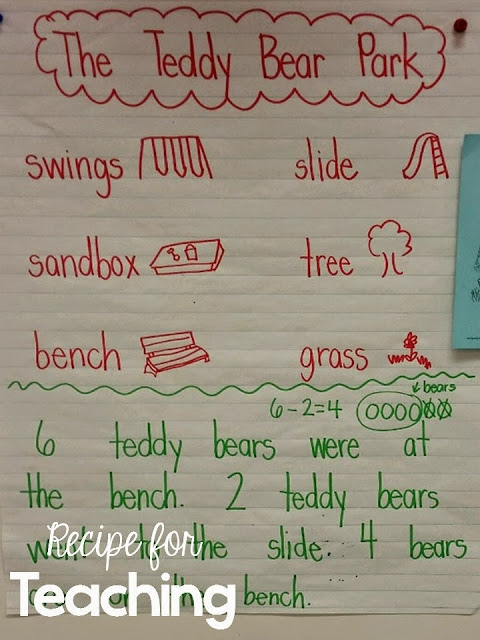 The Teddy Bear Park
swings slide
sandbox tree
bench grass
bears
6-2=4
6 teddy bears were at
the bench. 2 teddy bears
went the slide. 4 bears
the bench.
Recipe for
Teaching